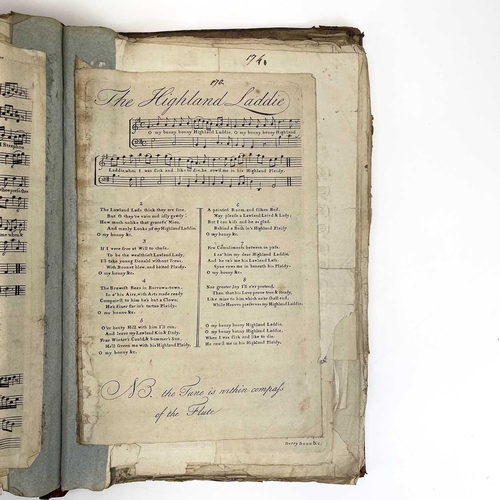 174.
178.
The Highland Laddie
O my bonny bonny Highland Laddie, O my bonny bonny Highland
Laddie, when I was sick and like to die, he row'd me in his Highland Plaidy.
2
The Lawland Lads think they are fine,
But O they're vain and idly gawdy
How much unlike that gracefu' Mien,
And manly Looks of my Highland Laddie
O my bonny &c.
3
If I were free at Will to chuse
To be the wealthiest Lawland Lady,
I'd take young Donald without Trews,
With Bonnet blew, and belted Plaidy.
O my bonny &c.
4
The Brawest Beau in Borrows-town,
In a' his Airs, with Arts made ready
Compair'd to him he's but a Clown;
He's finer far in's tartan Plaidy.
O my bonny &c.
5
O'er benty Hill with him I'll run,
And leave my Lawland Kin & Dady.
Frae Winter's Cauld, & Summer's Sun,
He'll screen me with his Highland Plaidy.
O my bonny &c.
A painted Room, and silken Bed,
May please a Lawland Laird & Lady;
But I can kiss and be as glad,
Behind a Bush in's Highland Plaidy
O my bonny &c.
Few Compliments between us pass,
I ca' him my dear Highland Laddie
And he ca's me his Lawland Lass,
Syne rows me in beneath his Plaidy.
O my bonny &c.
8
Nae greater Joy I'll e'er pretend,
Than that his Love prove true & steady,
Like mine to him which ne'er shall end,
While Heaven preserves my Highland Laddie.
O my bonny bonny Highland Laddie,
O my bonny bonny Highland Laddie,
When I was sick and like to die,
He row'd me in his Highland Plaidy.
NB. the Tune is within compass
of the Flute